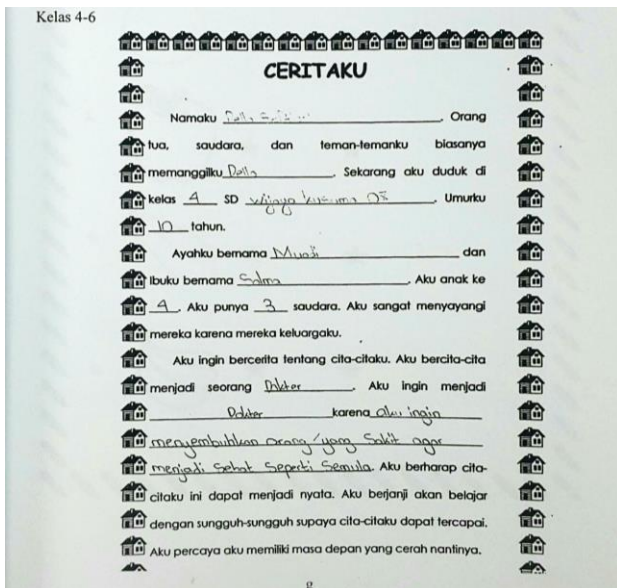 Kelas 4-6
CERITAKU
Namaku . Orang
tua, saudara, dan teman-temanku biasanya
memanggilku Della . Sekarang aku duduk di
kelas 4 SD Wijaya Kusuma 05 . Umurku
10 tahun.
Ayahku bernama Muaji dan
Ibuku bernama Salma . Aku anak ke
4 . Aku punya 3 saudara. Aku sangat menyayangi
mereka karena mereka keluargaku.
Aku ingin bercerita tentang cita-citaku. Aku bercita-cita
menjadi seorang Dokter . Aku ingin menjadi
Dokter karena aku ingin
menyembuhkan orang yang Sakit agar
menjadi Sehat Seperti Semula. Aku berharap cita-
citaku ini dapat menjadi nyata. Aku berjanji akan belajar
dengan sungguh-sungguh supaya cita-citaku dapat tercapai.
Aku percaya aku memiliki masa depan yang cerah nantinya.